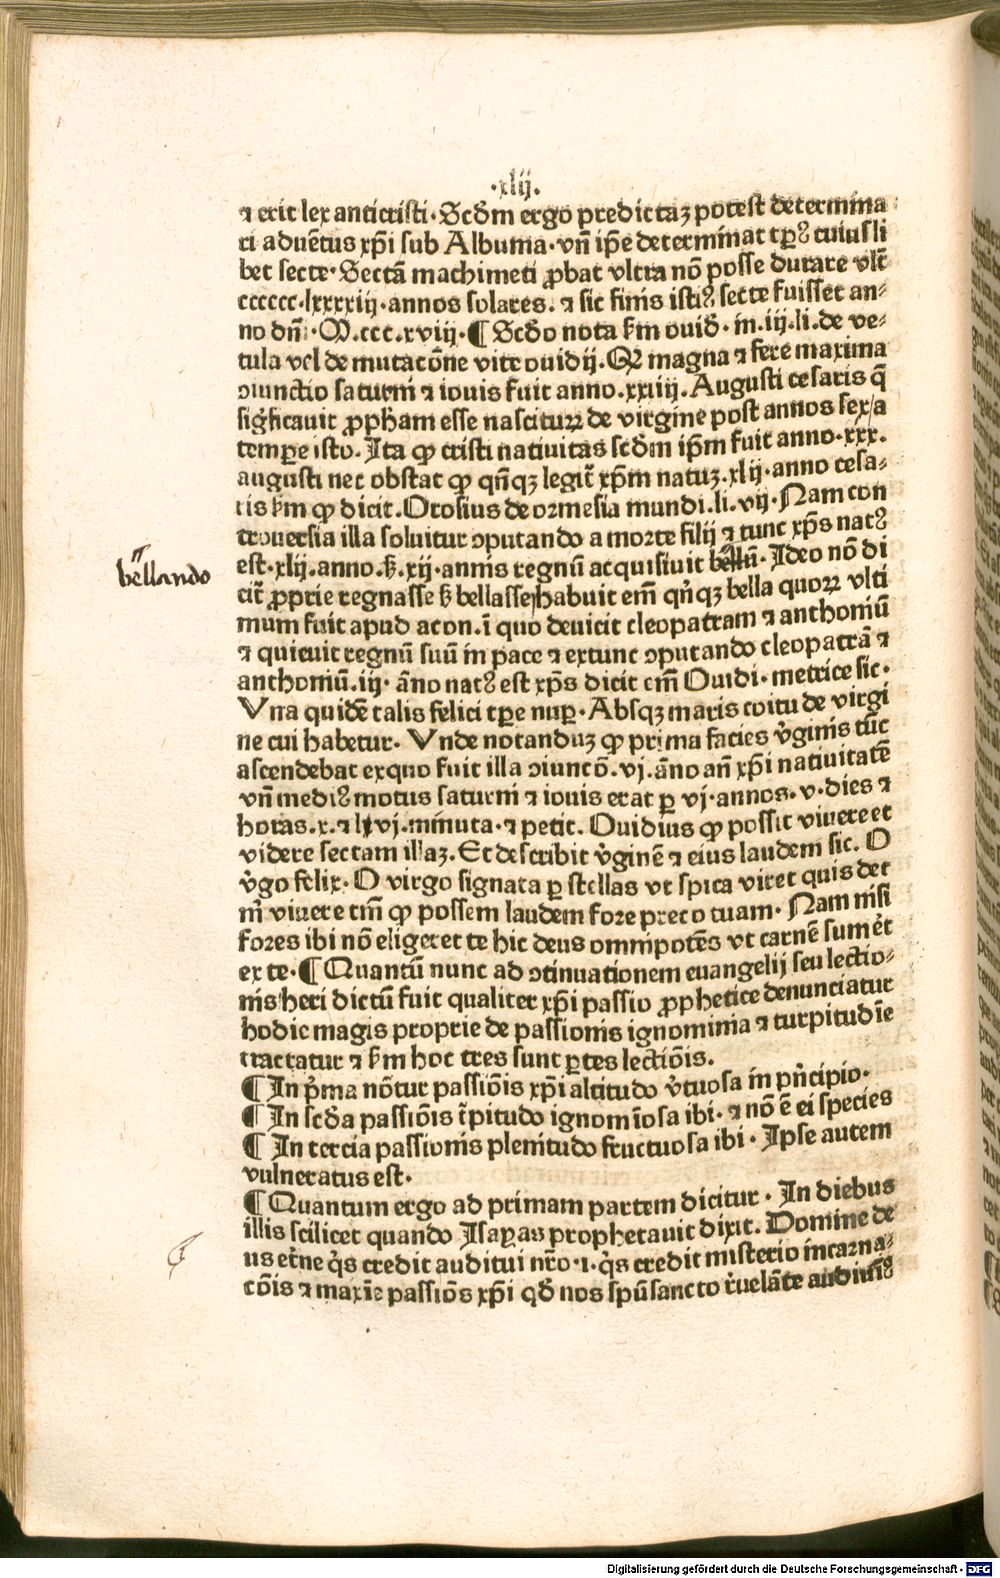 ·xlij.
⁊ erit lex anticristi· Scd̄m ergo predictaꝫ potest determina
ri aduētus xp̄i sub Albuma· vn̄ ip̄e determinat tꝑꝰ cuiusli
bet secte· Sectā machimeti ꝓbat vltra nō posse durare vlt̄
cccccc·lxxxxiij·annos solares. ⁊ sic finis istiꝰ secte fuisset an⸗
no dn̄i·M.ccc.xviij· ¶ Scd̄o nota ẜm ouid̄· in.iij.li.de ve⸗
tula vel de mutacōne vite ouidij. Qꝫ magna ⁊ fere maxima
ↄiunctio saturni ⁊ iouis fuit anno.xxiiij. Augusti cesaris q̄
sig̉ficauit ꝓph̄am esse nasciturꝝ de virgine post annos sex/a
tempeisto. Ita ꝙ cristi natiuitas scd̄m ip̄m fuit anno.xxx.
augusti nec obstat ꝙ qn̄qꝫ legit̄ xp̄m natuꝫ.xlij·anno cesa⸗
ris ẜm ꝙ dicit.Orosius de ormesia mundi.li.vij· Nam con
trouersia illa soluitur ↄputando a morte filij ⁊ tunc xp̄s natꝰ
est·xlij.anno.ẜ.xij·annis regnū acquisiuit bellū· Ideo nō di
bellando
cit̄ ꝓprie regnasse ẜ bellasse/habuit em̄ qn̄qꝫ bella quoꝝ vlti
mum fuit apud acon.ī quo deuicit cleopatram ⁊ anthoniū
⁊ quieuit regnū suū in pace ⁊ extunc ↄputando cleopatrā ⁊
anthoniū.iij· āno natꝰ est xp̄s dicit em̄ Ouidi· metrice sic·
Vna quidē talis felici tꝑe nuꝑ· Absqꝫ maris coitu de virgi
ne cui habetur· Vnde notanduꝫ ꝙ prima facies v̉ginis tūc
ascendebat exquo fuit illa ↄiunctō.vj.āno an̄ xp̄i natiuitatē
vn̄ mediꝰ motus saturni ⁊ iouis erat ꝑ vj·annos·v·dies ⁊
horas.x.⁊ lvj·minuta·⁊ petit. Ouidius ꝙ possit viuere et
videre sectam illaꝫ. Et describit v̉ginē ⁊ eius laudem sic. O
v̉go felix· O virgo signata ꝑ stellas vt spica viret quis det
m̄ viuere tm̄ ꝙ possem laudem fore preco tuam· Nam nisi
fores ibi nō eligeret te hic deus omnipotēs vt carnē sumēt
ex te· ¶ Quantū nunc ad ↄtinuationem euangelij seu lectio⸗
nis heri dictū fuit qualiter xp̄i passio ꝓphetice denunciatur
hodie magis proprie de passionis ignominia ⁊ turpitudīe
tractatur ⁊ ẜm hoc tres sunt ꝑtes lectiōis.
¶ In p̉ma nōtur passiōis xp̄i altitudo v̉tuosa in pn̉cipio·
¶ In scd̄a passiōis t̄pitudo ignomīosa ibi· ⁊ nō ē ei species
¶ In tercia passionis plenitudo fructuosa ibi· Ipse autem
vulneratus est·
¶ Quantum ergo ad primam partem dicitur· In diebus
illis scilicet quando Isayas prophetauit dixit. Domine de
us et̉ne q̉s credit auditui nr̄o·i·q̉s credit misterio incarna⸗
cōis ⁊ maxīe passiōs xp̄i qd̄ nos spū sancto r̉uelāte audiuiꝰ